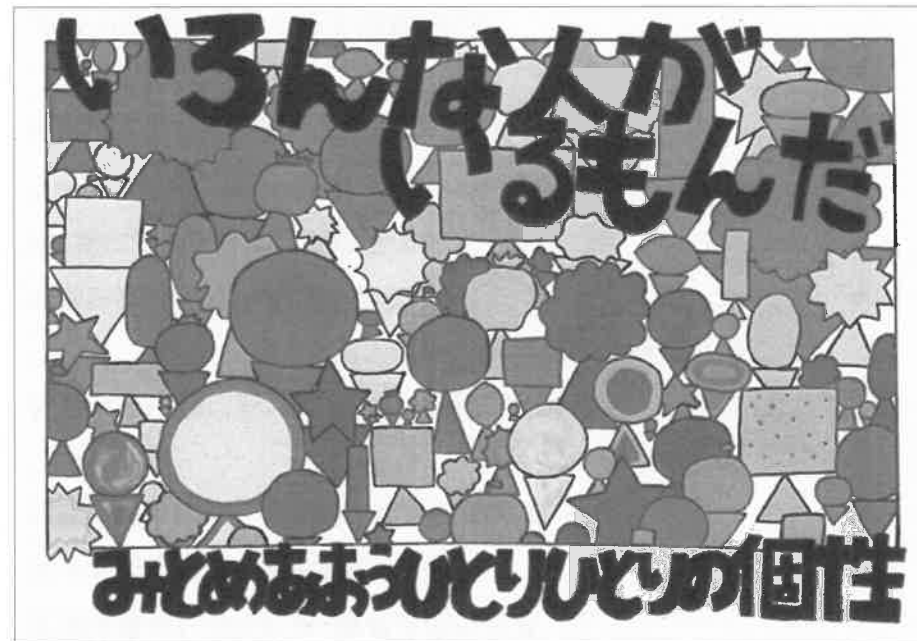 いろんな人が
いるもんだ
みとめあおうひとりひとりの個性